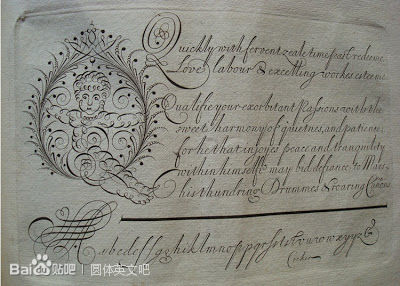 Quickly with fervent zeale time past redeeme
Love labour & excelling workes esteeme
Qualifie your exorbitant Passions with the
sweet harmony of quietnes, and patience:
for he that injoyes peace and tranquility
within himselfe may bid defiance to Mars
his thundring Drummes & roaring Canons
Aabcdefſgghiklmnoppqrſstvuwxyyz &
Cocker
Bai百度贴吧 | 圆体英文吧